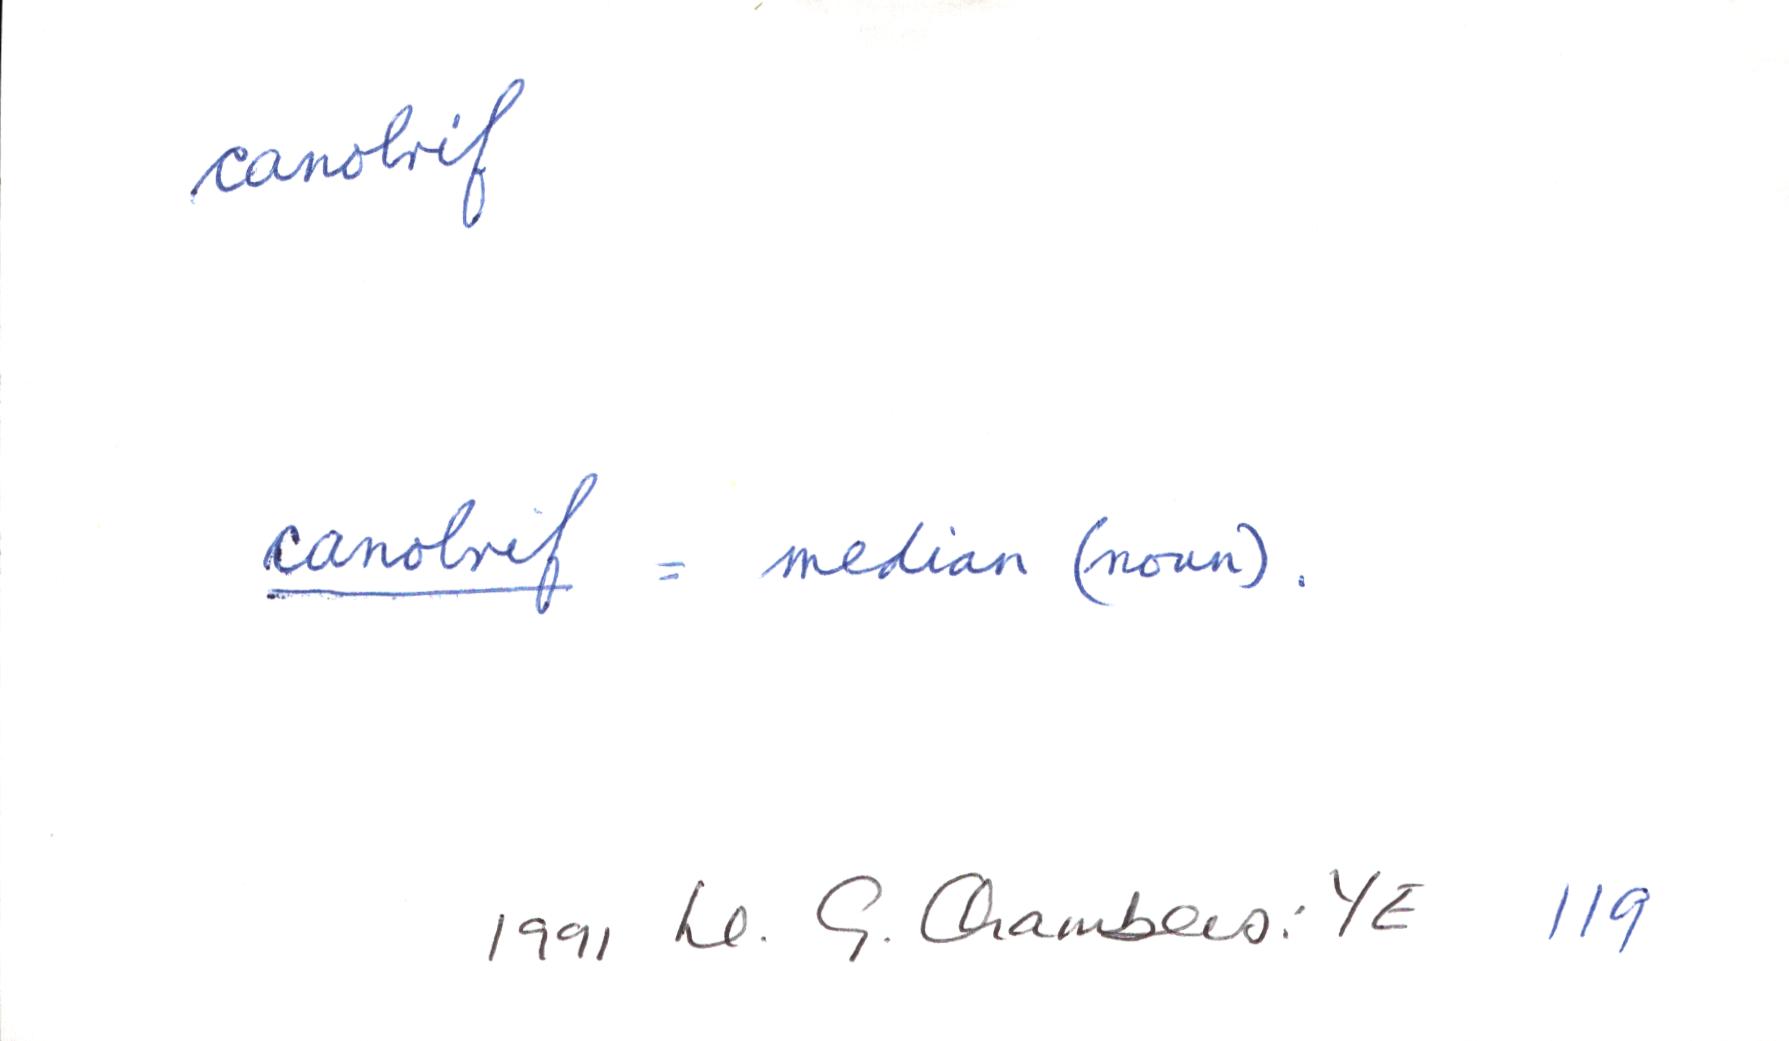 canolrif
canolrif = median (noun).
1991 Ll. G. Chambers: YE 119